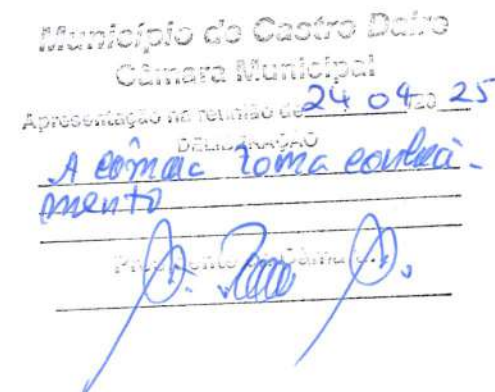 Município de Castro Daire
Câmara Municipal
Apresentação na reunião de 24 04 /20 25
DELIBERAÇÃO
A câmara toma conheci-
mento
Presidente da Câmara